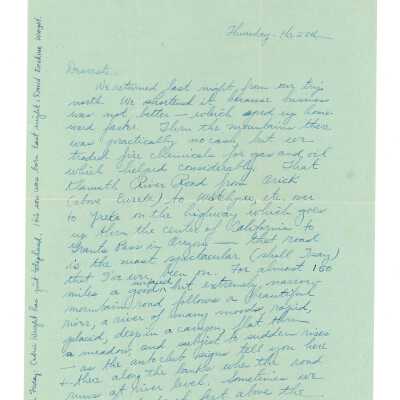 Thursday - 
Dearest -
We returned last night, from our trip
north. We shortened it because business
was not better - which sped us home-
ward faster. Thru the mountains there
was practically no cash, but we
traded fire chemicals for gas and oil
which helped considerably. That
Klamath River Road from Orick
(above Eureka) to etc. over
to Yreka on the highway which goes
up thru the center of California to
Grants Pass in Oregon - that road
is the most spectacular (shall I say)
that I've ever been on. For almost 160
miles a good surfaced but extremely narrow
mountain road follows a beautiful
river, a river of many moods, rapid,
placid, deep in a canyon, flat thru
a meadow, and subject to sudden rises
- as the autoclub signs tell you here
+ there along the banks when the road
runs at river level. Sometimes we
feet above the
Friday - Cedric Wright has just telephoned, his son was born last night: David Wright.